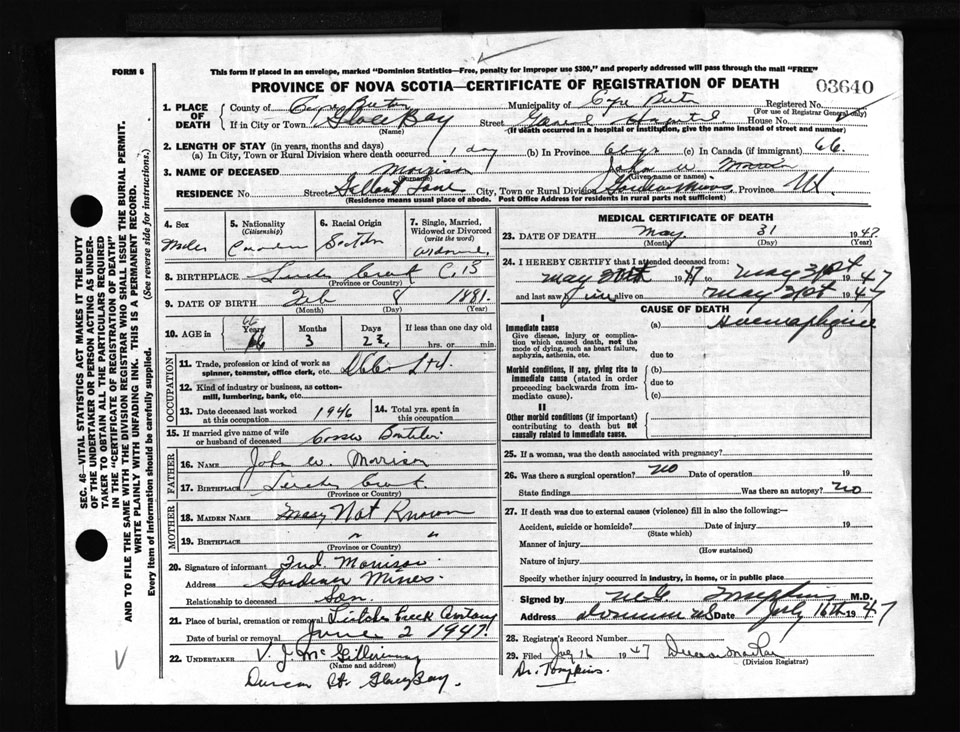 FORM 6
This form if placed in an envelope, marked "Dominion Statistics—Free, penalty for improper use $300," and properly addressed will pass through the mail "FREE"
PROVINCE OF NOVA SCOTIA—CERTIFICATE OF REGISTRATION OF DEATH
03640
1. PLACE OF DEATH
County of Cape Breton Municipality of Cape Breton Registered No.
(For use of Registrar General only)
If in City or Town Glace Bay Street General Hospital House No.
(Name) (If death occurred in a hospital or institution, give the name instead of street and number)
2. LENGTH OF STAY (in years, months and days)
(a) In City, Town or Rural Division where death occurred 1 day (b) In Province 66 yr (c) In Canada (if immigrant) 66.
3. NAME OF DECEASED Morrison John W
(Surname) (Given name or names)
RESIDENCE No. Street Gallant Lane City, Town or Rural Division Gardiner Mines, Province NS
(Residence means usual place of abode. Post Office Address for residents in rural parts not sufficient)
4. Sex
Male
5. Nationality (Citizenship)
Canadian
6. Racial Origin
7. Single, Married, Widowed or Divorced (write the word)
8. BIRTHPLACE C. B
(Province or Country)
9. DATE OF BIRTH Feb 8 1881.
(Month) (Day) (Year)
10. AGE in
Years 66
Months 3
Days
If less than one day old
hrs. or min.
OCCUPATION
11. Trade, profession or kind of work as spinner, teamster, office clerk, etc.
12. Kind of industry or business, as cotton-mill, lumbering, bank, etc.
13. Date deceased last worked at this occupation 1946
14. Total yrs. spent in this occupation
15. If married give name of wife or husband of deceased
FATHER
16. NAME John W. Morrison
17. BIRTHPLACE
(Province or Country)
MOTHER
18. MAIDEN NAME Mary Not Known
19. BIRTHPLACE " "
(Province or Country)
20. Signature of informant Fred. Morrison
Address Gardiner Mines
Relationship to deceased Son
21. Place of burial, cremation or removal Creek
Date of burial or removal June 2 1947.
22. UNDERTAKER V. J. McGillivray
(Name and address)
Duncan St. Glace Bay.
MEDICAL CERTIFICATE OF DEATH
23. DATE OF DEATH May 31 1947
(Month) (Day) (Year)
24. I HEREBY CERTIFY that I attended deceased from:
May 1947 to May 31st 1947
and last saw alive on May 31st 1947
CAUSE OF DEATH
I
Immediate cause
Give disease, injury or complication which caused death, not the mode of dying, such as heart failure, asphyxia, asthenia, etc.
(a)
due to
Morbid conditions, if any, giving rise to immediate cause (stated in order proceeding backwards from immediate cause).
(b)
due to
(c)
II
Other morbid conditions (if important) contributing to death but not causally related to immediate cause.
25. If a woman, was the death associated with pregnancy?
26. Was there a surgical operation? no Date of operation 19
State findings Was there an autopsy? no
27. If death was due to external causes (violence) fill in also the following:—
Accident, suicide or homicide? Date of injury 19
(State which)
Manner of injury
(How sustained)
Nature of injury
Specify whether injury occurred in industry, in home, or in public place
Signed by Tompkins M.D.
Address Dominion NS Date July 16th 1947
28. Registrar's Record Number
29. Filed July 16 1947
(Division Registrar)
Dr. Tompkins.
SEC. 46—VITAL STATISTICS ACT MAKES IT THE DUTY
OF THE UNDERTAKER OR PERSON ACTING AS UNDER-
TAKER TO OBTAIN ALL THE PARTICULARS REQUIRED
IN THE "CERTIFICATE OF REGISTRATION OF DEATH"
AND TO FILE THE SAME WITH THE DIVISION REGISTRAR WHO SHALL ISSUE THE BURIAL PERMIT.
WRITE PLAINLY WITH UNFADING INK. THIS IS A PERMANENT RECORD.
Every item of information should be carefully supplied. (See reverse side for instructions.)